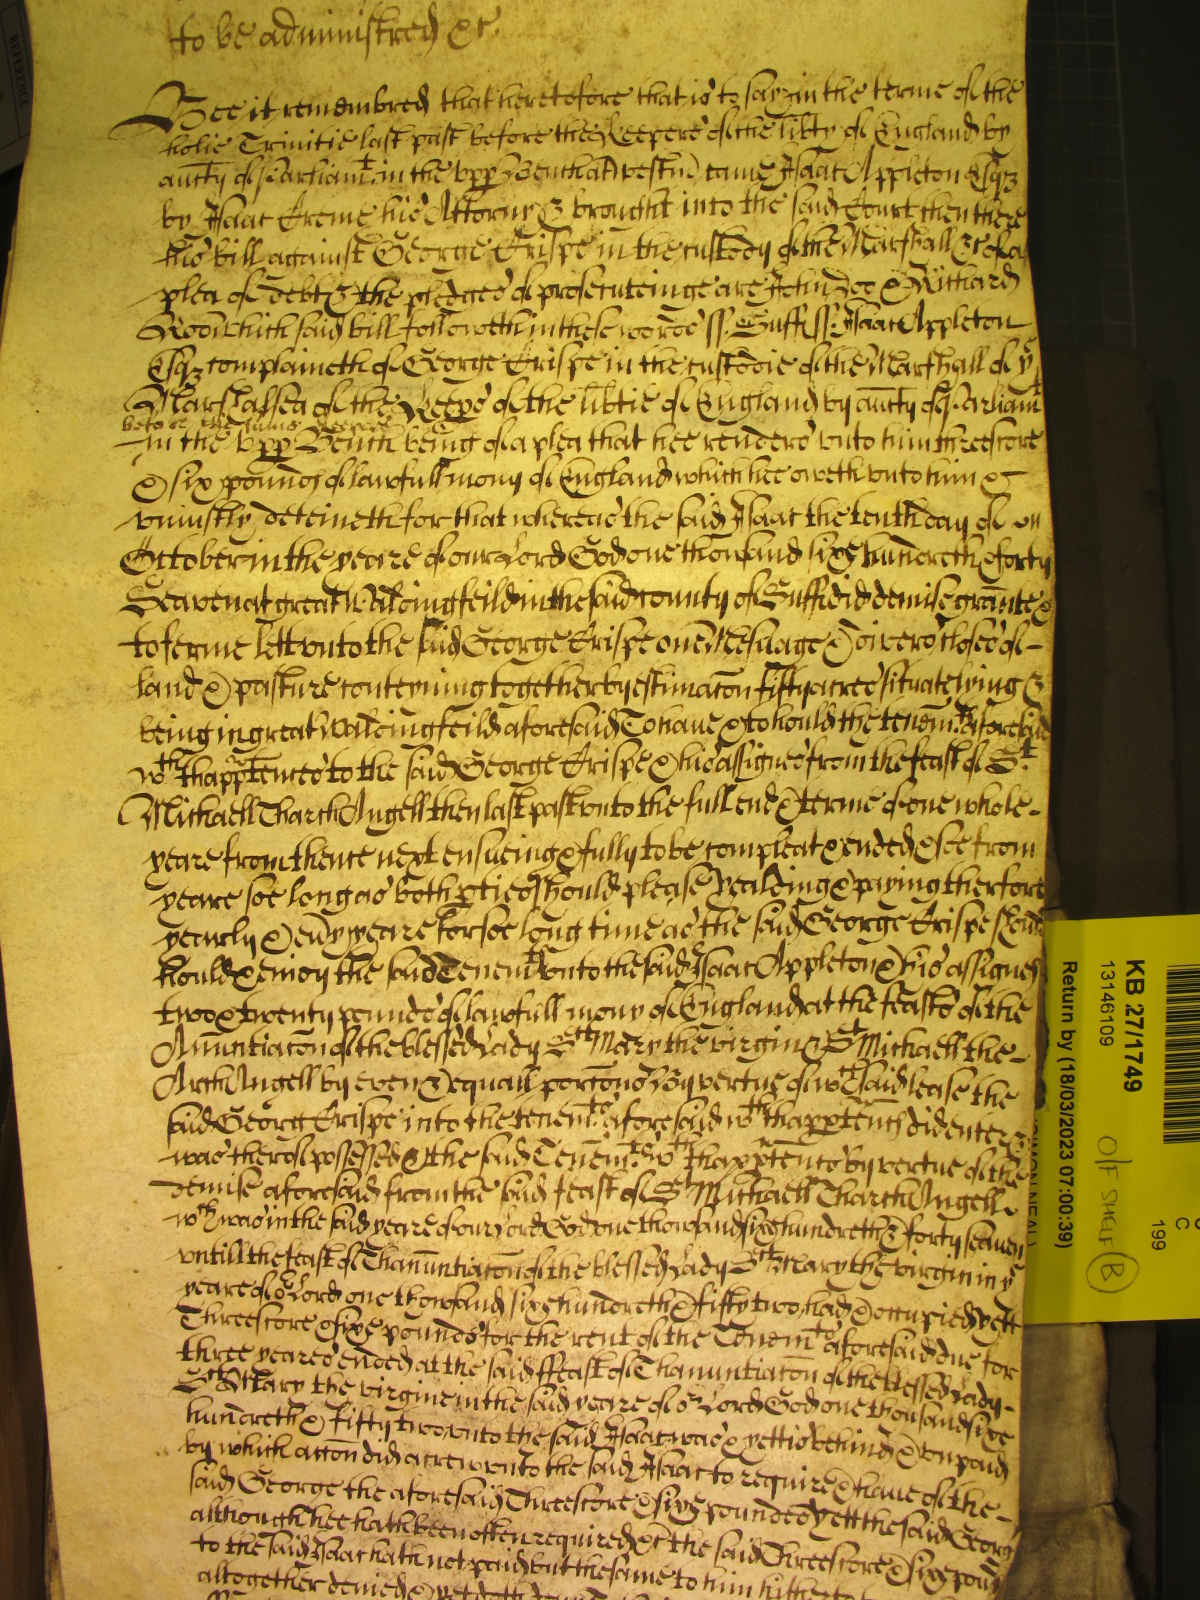 to be administred &c
Bee it remembred that heretofore that is to say in the terme of the
holie Trinitie last past before the Keepers of the lib'ty of England by
aucty of Parliamt in the upp Bench att Westm' came Isaac Appleton Esqz
by Isaac Creme his Attorny & brought into the said Court then there
his bill against George Crispe in the custody of the Marshall &c of a
plea of debt & the pledges of prosecuteinge are John Doe & Richard
Roo which said bill followeth in these wordes ss. Suff ss. Isaac Appleton
Esqz complaineth of George Crispe in the custodie of the Marshall of ye
Marshalsea of the Keeps of the lib'tie of England by aucty of Parliamt
before the same Keepers
in the upp Bench being of a plea that hee renders unto him threescore
& six pounds of lawfull mony of England which hee oweth unto him &
uniustly deteineth for that whereas the said Isaac the tenth day of
October in the yeare of our Lord God one thowsand sixe hundreth & forty
Seaven at great Waldingfeild in the said county of Suff did demise grante &
to ferme lett unto the said George Crispe one Messuage & divers closes of
land & pasture conteyning together by estimacon fifty acres situate lying &
being in great Waldingfeild aforesaid To have & to hould the tenemts aforesaid
wth thapptences to the said George Crispe & his assignes from the feast of St
Michaell Tharch Angell then last past unto the full end & terme of one whole
yeare from thence next ensueing & fully to be compleat & ended & soe from
yeare soe long as both pties should please yealding & paying therfore
yearly & evy yeare for soe long time as the said George Crispe should
hould & enioy the said Tenemts unto the said Isaac Appleton & his assignes
two & twenty pounds of lawfull mony of England at the feasts of the
Anuntiacon of the blessed Lady Sct Mary the virgin & St Michaell the
Arch Angell by even & equall porcons By vertue of wch said lease the
said George Crispe into the tenemts aforesaid wth thapptencs did enter &
was therof possessed & the said Tenemts wth thapptencs by vertue of the
demise aforesaid from the said feast of St Michaell Tharch Angell
wch was in the said yeare of our Lord God one thowsand sixe hundreth & forty seaven
untill the feast of Thanuntiacon of the blessed Lady Sct Mary the virgin in ye
yeare of or Lord one thowsand sixe hundreth & fifty two had & occupied yett
Threescore & sixe pounds for the rent of the Tenemts aforesaid due for
three yeares ended at the said ffeast of Thanuntiacon of the blessed Lady
Sct Mary the virgine in the said yeare of or Lord God one thousand sixe
hundreth & fifty two unto the said Isaac was & yett is behind & unpaid
by which accon did accrew unto the said Isaac to require & have of the
said George the aforesaid Threescore & sixe pounds Yett the said Georg
although hee hath been often required &c the said Threescore & sixe pounds
to the said Isaac hath not paid but the same to him hitherto
altogether denied &
KB 27/1749
13146109
Return by (18/03/2023 07:00:39)
OFF SHELF
B
C
199
REFERENCE